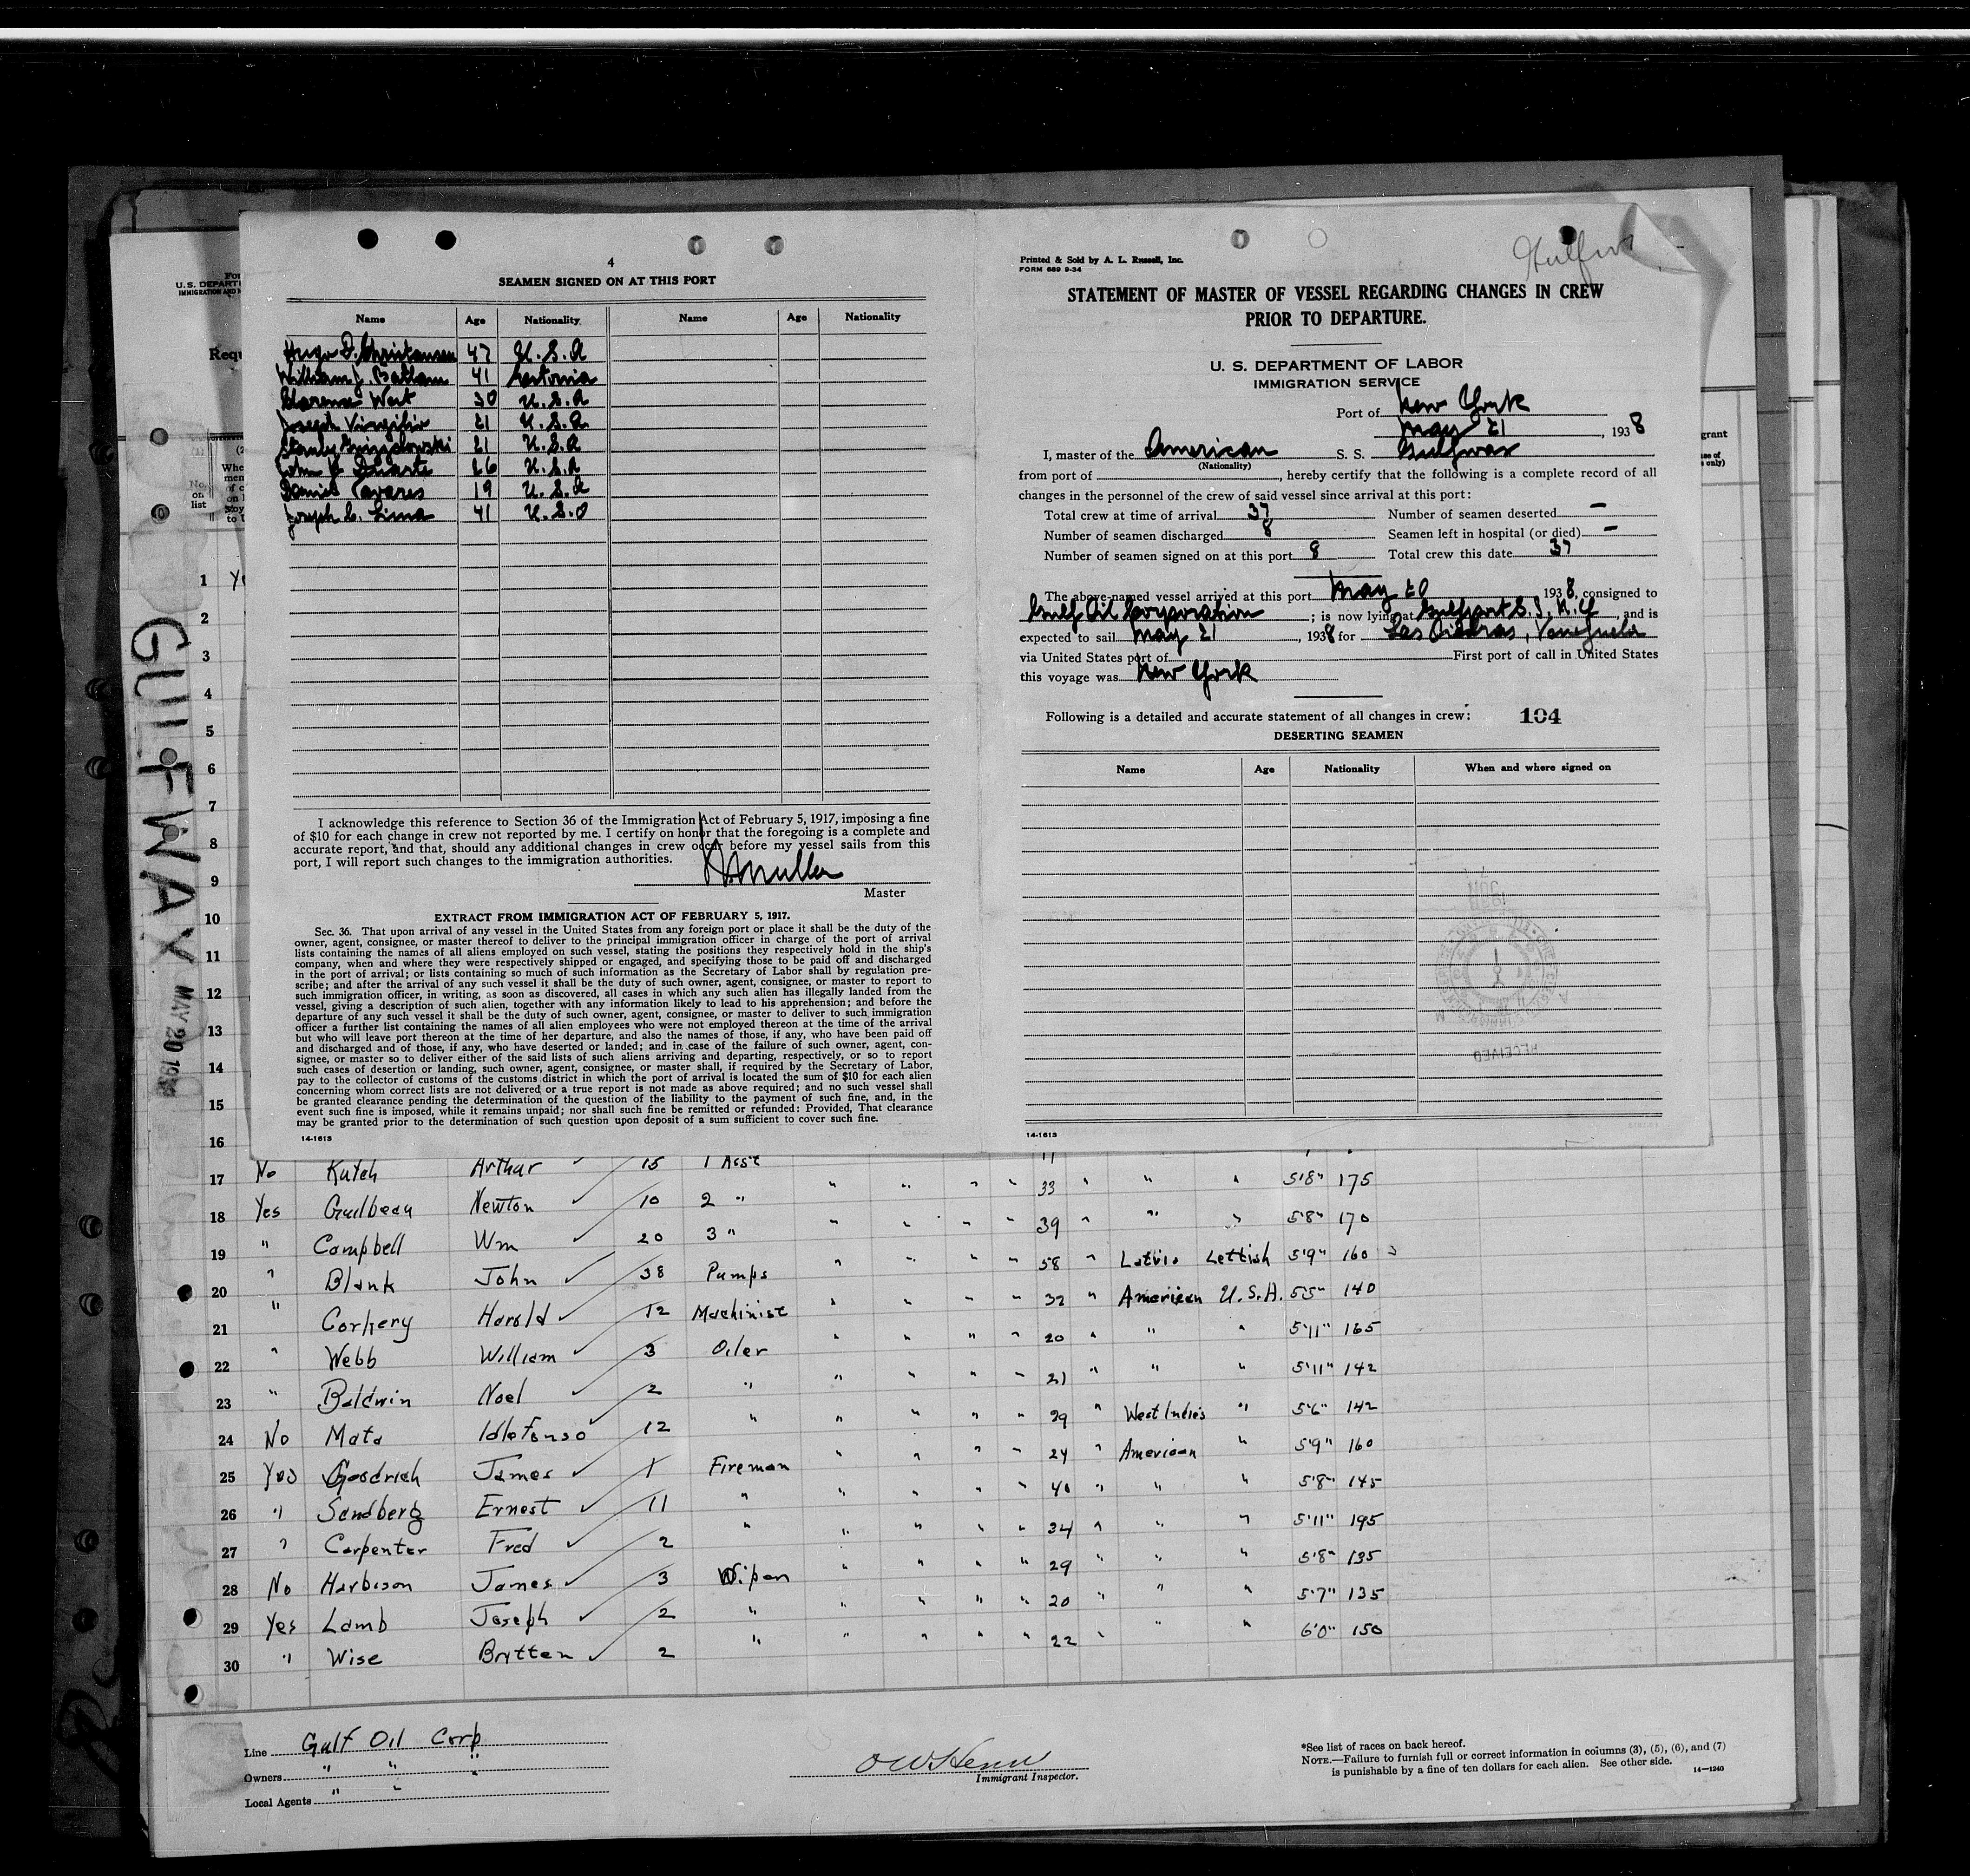 4
SEAMEN SIGNED ON AT THIS PORT
Name Age Nationality Name Age Nationality
Hugo D. Christansen 47 U.S.A
William J. 41 Estonia
Clarence West 30 U.S.A
Joseph Virgilio 21 U.S.A.
21 U.S.A
John Duarte 26 U.S.A
Daniel Tavares 19 U.S.A
Joseph C. Lima 41 U.S.A
I acknowledge this reference to Section 36 of the Immigration Act of February 5, 1917, imposing a fine
of $10 for each change in crew not reported by me. I certify on honor that the foregoing is a complete and
accurate report, and that, should any additional changes in crew occur before my vessel sails from this
port, I will report such changes to the immigration authorities.
Master
EXTRACT FROM IMMIGRATION ACT OF FEBRUARY 5, 1917.
Sec. 36. That upon arrival of any vessel in the United States from any foreign port or place it shall be the duty of the
owner, agent, consignee, or master thereof to deliver to the principal immigration officer in charge of the port of arrival
lists containing the names of all aliens employed on such vessel, stating the positions they respectively hold in the ship's
company, when and where they were respectively shipped or engaged, and specifying those to be paid off and discharged
in the port of arrival; or lists containing so much of such information as the Secretary of Labor shall by regulation pre-
scribe; and after the arrival of any such vessel it shall be the duty of such owner, agent, consignee, or master to report to
such immigration officer, in writing, as soon as discovered, all cases in which any such alien has illegally landed from the
vessel, giving a description of such alien, together with any information likely to lead to his apprehension; and before the
departure of any such vessel it shall be the duty of such owner, agent, consignee, or master to deliver to such immigration
officer a further list containing the names of all alien employees who were not employed thereon at the time of the arrival
but who will leave port thereon at the time of her departure, and also the names of those, if any, who have been paid off
and discharged and of those, if any, who have deserted or landed; and in case of the failure of such owner, agent, con-
signee, or master so to deliver either of the said lists of such aliens arriving and departing, respectively, or so to report
such cases of desertion or landing, such owner, agent, consignee, or master shall, if required by the Secretary of Labor,
pay to the collector of customs of the customs district in which the port of arrival is located the sum of $10 for each alien
concerning whom correct lists are not delivered or a true report is not made as above required; and no such vessel shall
be granted clearance pending the determination of the question of the liability to the payment of such fine, and, in the
event such fine is imposed, while it remains unpaid; nor shall such fine be remitted or refunded: Provided, That clearance
may be granted prior to the determination of such question upon deposit of a sum sufficient to cover such fine.
14-1613
Printed & Sold by A. L. Russell, Inc.
FORM 689 9-34
STATEMENT OF MASTER OF VESSEL REGARDING CHANGES IN CREW
PRIOR TO DEPARTURE.
U. S. DEPARTMENT OF LABOR
IMMIGRATION SERVICE
Port of New York
May 21, 1938
I, master of the American S. S. Gulfwax
(Nationality)
from port of , hereby certify that the following is a complete record of all
changes in the personnel of the crew of said vessel since arrival at this port:
Total crew at time of arrival 37 Number of seamen deserted —
Number of seamen discharged 8 Seamen left in hospital (or died) —
Number of seamen signed on at this port 8 Total crew this date 37
The above-named vessel arrived at this port May 20 1938, consigned to
Gulf Oil Corporation ; is now lying at Gulfport S.I. N.Y , and is
expected to sail May 21 , 1938 for Las Piedras, Venezuela
via United States port of First port of call in United States
this voyage was New York
Following is a detailed and accurate statement of all changes in crew: 104
DESERTING SEAMEN
Name Age Nationality When and where signed on
RECEIVED
14-1613
GULFWAX MAY 20 1938
1
2
3
4
5
6
7
8
9
10
11
12
13
14
15
16
17 No Kutch Arthur 15 1 Asst
18 Yes Guilbeau Newton 10 2 " " " " " 33 " " " 5'8" 175
19 " Campbell Wm 20 3 " " " " " 39 " " " 5'8" 170
20 " Blank John 38 Pumps " " " " 58 " Latvia Lettish 5'9" 160
21 " Corkery Harold 12 Machinist " " " " 32 " American U.S.A. 5'5" 140
22 " Webb William 3 Oiler " " " " 20 " " " 5'11" 165
23 " Baldwin Noel 2 " " " " " 21 " " " 5'11" 142
24 No Mata Idlefonso 12 " " " " " 29 " West Indies " 5'6" 142
25 Yes Goodrich James 1 Fireman " " " " 24 " American " 5'9" 160
26 " Sandberg Ernest 11 " " " " " 40 " " " 5'8" 145
27 " Carpenter Fred 2 " " " " " 34 " " " 5'11" 195
28 No Harbison James 3 Wiper " " " " 29 " " " 5'8" 135
29 Yes Lamb Joseph 2 " " " " " 20 " " " 5'7" 135
30 " Wise Britten 2 " " " " " 22 " " " 6'0" 150
Line Gulf Oil Corp
Owners " " "
Local Agents " "
Immigrant Inspector.
*See list of races on back hereof.
NOTE.—Failure to furnish full or correct information in columns (3), (5), (6), and (7)
is punishable by a fine of ten dollars for each alien. See other side.
14—1240